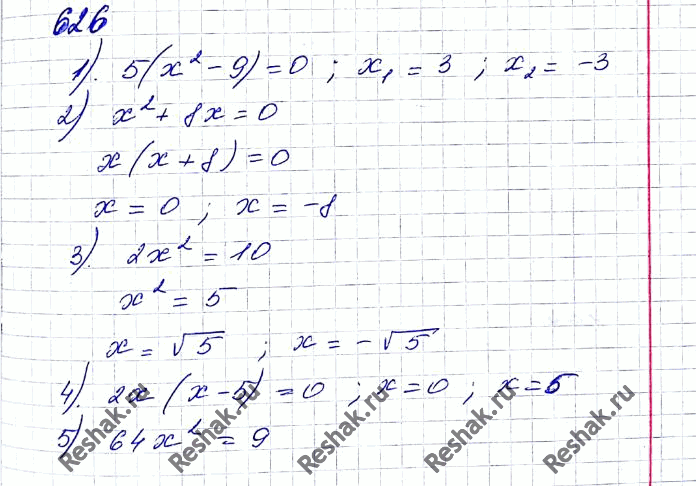 626
1). 5(x² - 9) = 0 ; x₁ = 3 ; x₂ = -3
2) x² + 8x = 0
x(x + 8) = 0
x = 0 ; x = -8
3). 2x² = 10
x² = 5
x = √5 ; x = -√5
4). 2x(x - 5) = 0 ; x = 0 ; x = 5
5) 64x² = 9
Reshak.ru Reshak.ru Reshak.ru Reshak.ru Reshak.ru